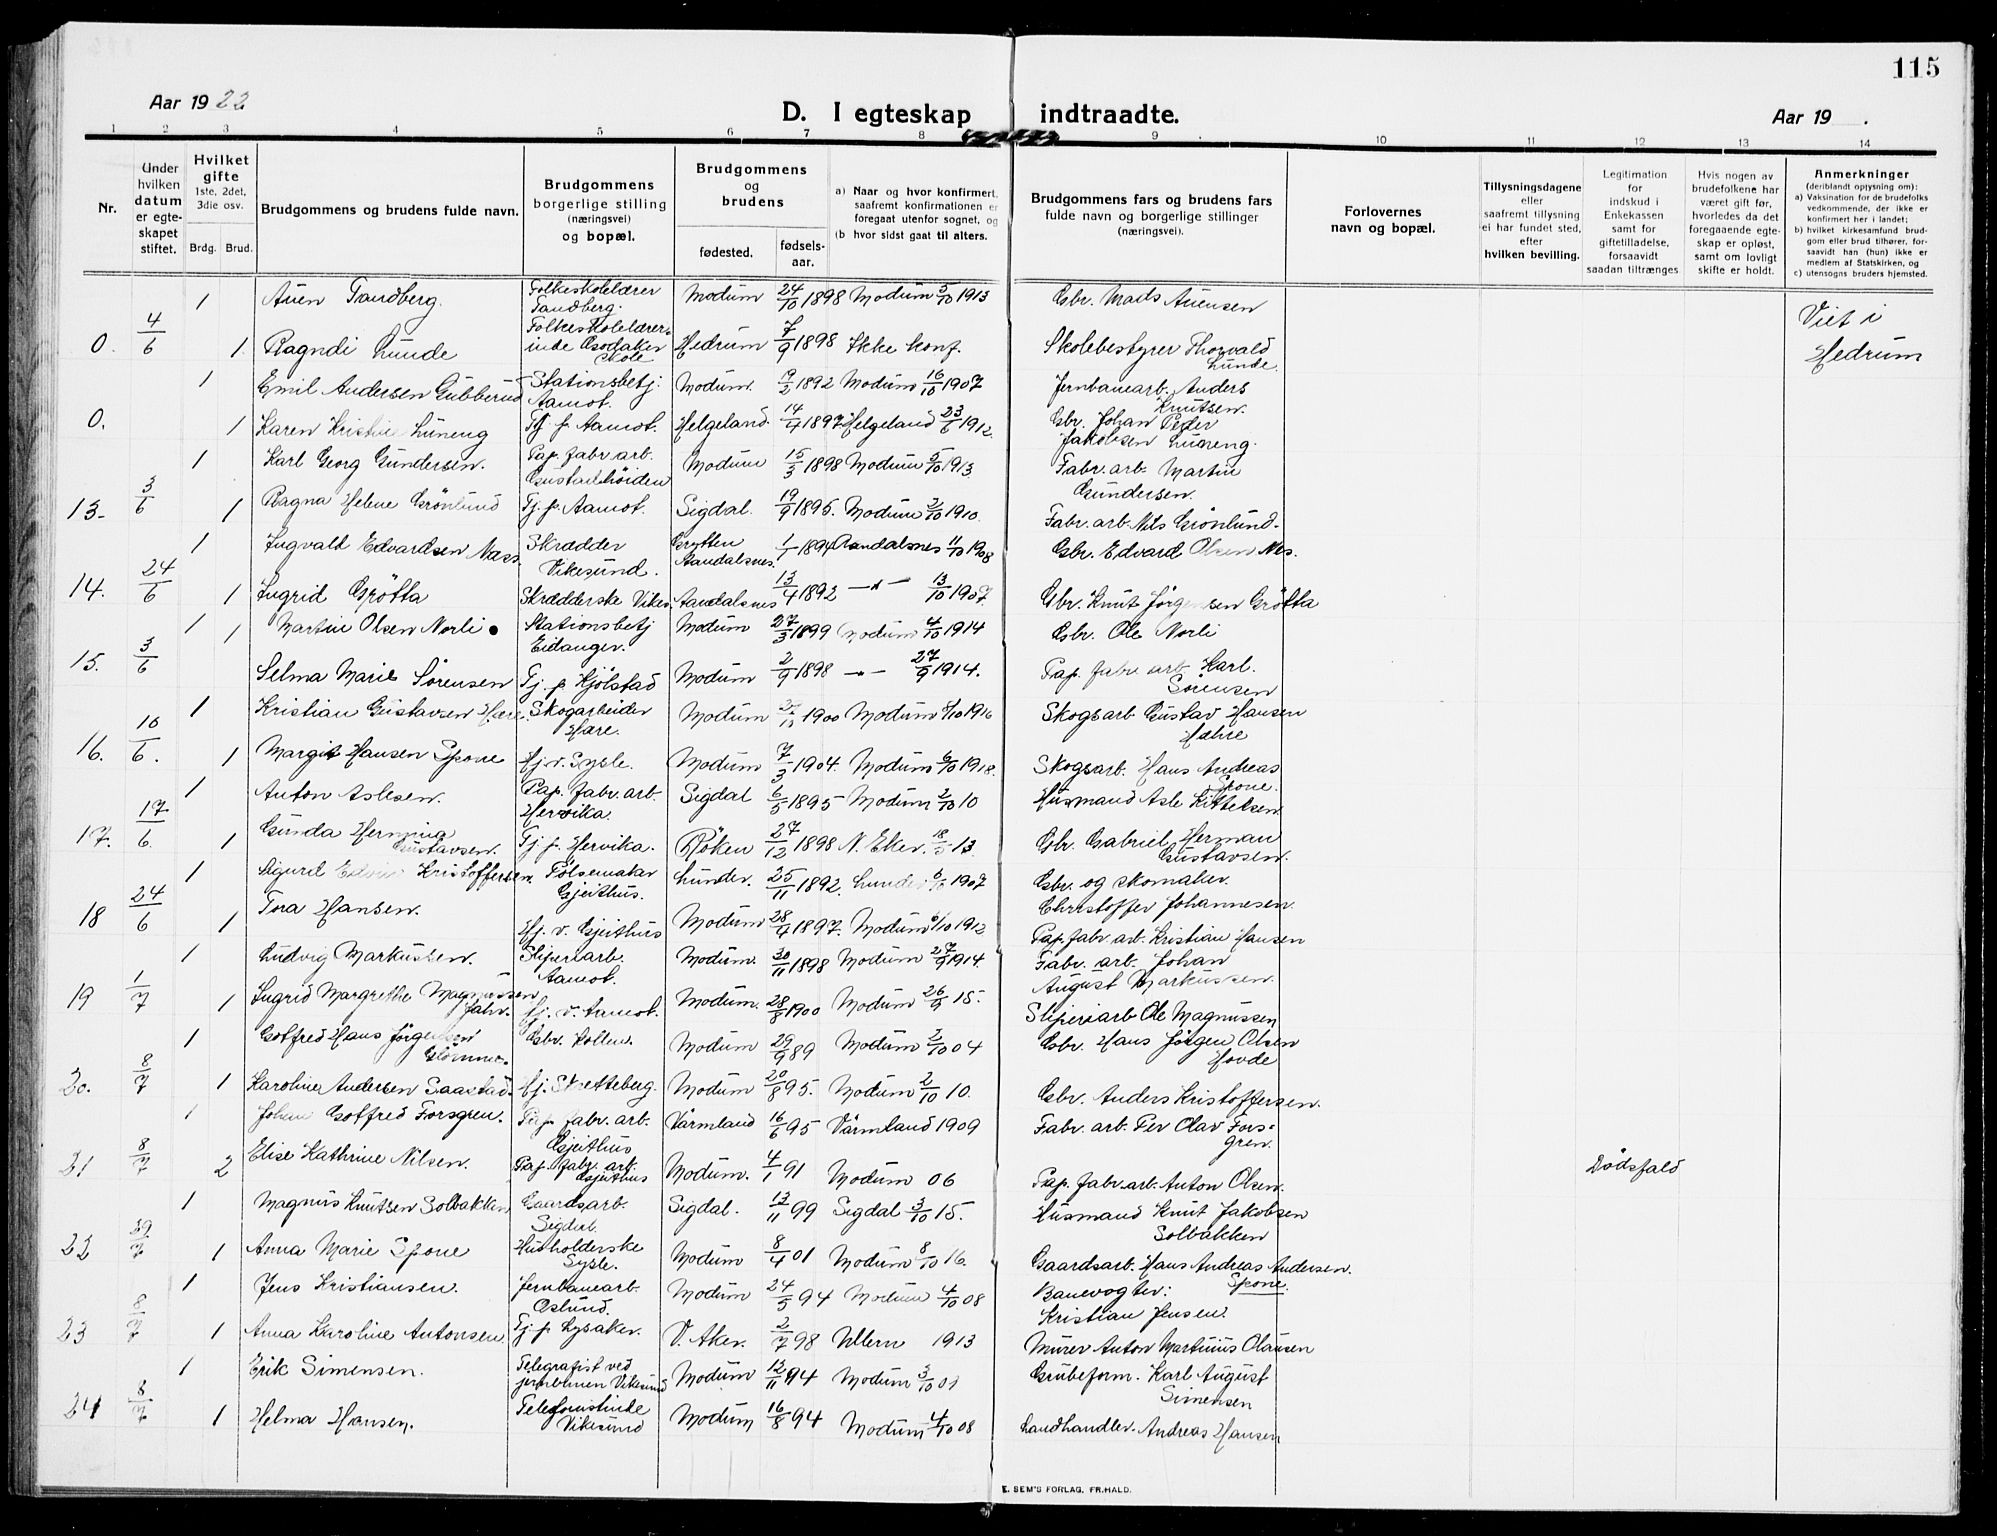 115
Aar 1922
D. I egteskap indtraadte.
Aar 19 .
1 2 3 4 5 6 7 8 9 10 11 12 13 14
Nr.
Under hvilken datum er egteskapet stiftet.
Hvilket gifte 1ste, 2det, 3die osv.
Brdg. Brud.
Brudgommens og brudens fulde navn.
Brudgommens borgerlige stilling (næringsvei) og bopæl.
Brudgommens og brudens
fødested.
fødselsaar.
a) Naar og hvor konfirmert, saafremt konfirmationen er foregaat utenfor sognet, og
(b hvor sidst gaat til alters.
Brudgommens fars og brudens fars fulde navn og borgerlige stillinger (næringsvei).
Forlovernes navn og bopæl.
Tillysningsdagene eller saafremt tillysning ei har fundet sted, efter hvilken bevilling.
Legitimation for indskud i Enkekassen samt for giftetilladelse, forsaavidt saadan tiltrænges
Hvis nogen av brudefolkene har været gift før, hvorledes da det foregaaende egteskap er opløst, samt om lovligt skifte er holdt.
Anmerkninger (deriblandt oplysning om):
a) Vaksination for de brudefolks vedkommende, der ikke er konfirmert her i landet;
b) hvilket kirkesamfund brudgom eller brud tilhører, forsaavidt han (hun) ikke er medlem af Statskirken, og
c) utensogns bruders hjemsted.
1 Auen Tandberg. Folkeskolelærer Tandberg. Modum 24/10 1898 Modum 5/10 1913 Gbr. Mads Auensen
0. 4/6 1 Ragndi Lunde Folkeskolelærerinde skole Hedrum 7/9 1898 Ikke konf. Skolebestyrer Thorvald Lunde. Viet i Hedrum
1 Emil Andersen Gubberud Stationsbetj. Aamot. Modum. 19/2 1892 Modum 16/10 1907 Jernbanearb. Anders Knutsen.
0. 1 Karen Kristine Luneng Tj. p. Aamot. Helgeland. 14/4 1897 Helgeland 23/6 1912. Gbr. Johan Peder Jakobsen Luneng.
1 Karl Georg Gundersen. Pap. fabr. arb. Gustadhöiden Modum 15/3 1898 Modum 5/10 1913. Fabr. arb. Martin Gundersen.
13. 3/6 1 Ragna Helene Grönlund Tj. p. Aamot. Sigdal. 19/9 1895. Modum 2/10 1910. Fabr. arb. Nils Grönlund.
1 Ingvald Edvardsen Næss. Skrædder Vikesund. Grytten Aandalsnes. 1/1 1894 Aandalsnes 11/10 1908 Gbr. Edvard Olsen Nes.
14. 24/6 1 Ingrid Grötta Skrædderske Vikes. Aandalsnes 13/4 1892 —"— 13/10 1907. Gbr. Knut Jörgensen Grötta
1 1 Martin Olsen Norli Stationsbetj Eidanger. Modum 27/3 1899 Modum 4/10 1914 Gbr. Ole Norli
15. 3/6 Selma Marie Sörensen Tj. p. Kjölstad Modum 2/9 1898 —"— 27/9 1914. Pap. fabr arb. Karl. Sörensen
1 Kristian Gustavsen Hære. Skogarbeider Hære. Modum 1900 Modum 1916 Skogsarb Gustav Hansen Hæhre
16. 10/6. 1 Margit Hansen Spone Hj. v. Sysle. Modum 7/3 1904. Modum 6/10 1918. Skogsarb. Hans Andreas Spone.
1 Anton Aslesen. Pap. fabr. arb. Hervika. Sigdal 6/5 1895 Modum 2/10 10 Husmand Asle Kittelsen
17. 17/6. 1 Gunda Hermina Gustavsen. Tj. p. Hervika. Röken 27/12 1898 N. Eker. 13. Gbr. Gabriel Herman Gustavsen.
1 Sigurd Kristoffersen. Pölsemaker Gjeithus. Lunder. 25/11 1892. Lunder 6/10 1907 Gbr. og skomaker. Christoffer Johannesen.
18 24/6 1 Tora Hansen. Hj. v. Gjeithus Modum 28/4 1897. Modum 6/10 1912 Pap. fabr. arb. Kristian Hansen
1 Ludvig Markussen. Sliperiarb. Aamot. Modum. 30/11 1898 Modum 27/9 1914. Fabr. arb. Johan August Markussen.
19 1/7 1 Ingrid Margrethe Magnussen Hj. v. Aamot. Modum. 28/8 1900 Modum 26/9 15. Sliperiarb Ole Magnussen
1 Gotfred Hans Jörgensen Glömmo. Gbr. Kollen. Modum 29/9 89 Modum 2/10 04 Gbr. Hans Jörgen Olsen Hovde
20. 8/7 1 Karoline Andersen Saastad. Hj. Skretteberg. Modum 20/8 95. Modum 2/10 10. Gbr. Anders Kristoffersen.
1 Johan Gotfred Forsgren. Pap. fabr. arb. Gjeithus Värmland 16/6 95 Värmland 1909 Fabr. arb. Per Olav Forsgren.
21 8/7 2 Elise Kathrine Nilsen. Pap. fabr. arb. Gjeithus Modum. 4/1 91 Modum 06 Pap. fabr. arb. Anton Olsen. Dödsfald
1 Magnus Knutsen Solbakken Gaardsarb. Sigdal. 13/11 99 Sigdal 3/10 15. Husmand Knut Jakobsen Solbakken
22 29/7 1 Anna Marie Spone Husholderske Sysle. Modum 8/4 01 Modum 8/10 16. Gaardsarb. Hans Andreas Andersen. Spone.
1 Jens Kristiansen. Jernbanearb. Modum 24/5 94 Modum 4/10 08 Banevogter: Kristian Jensen.
23 8/7 1 Anna Karoline Antonsen. Tj. p. Lysaker. V. Aker. 2/7 98 Ullern 1913 Murer Anton Martinius Olausen
1 Erik Simensen. Telegrafist ved jernbanen Vikesund Modum 12/11 94 Modum 3/10 09 Grubeform. Karl August Simensen
24 8/7 1 Helma Hansen. Telefonistinde Vikesund Modum 16/8 94 Modum 4/10 08 Landhandler. Andreas Hansen
E. SEM'S FORLAG, FR.HALD.